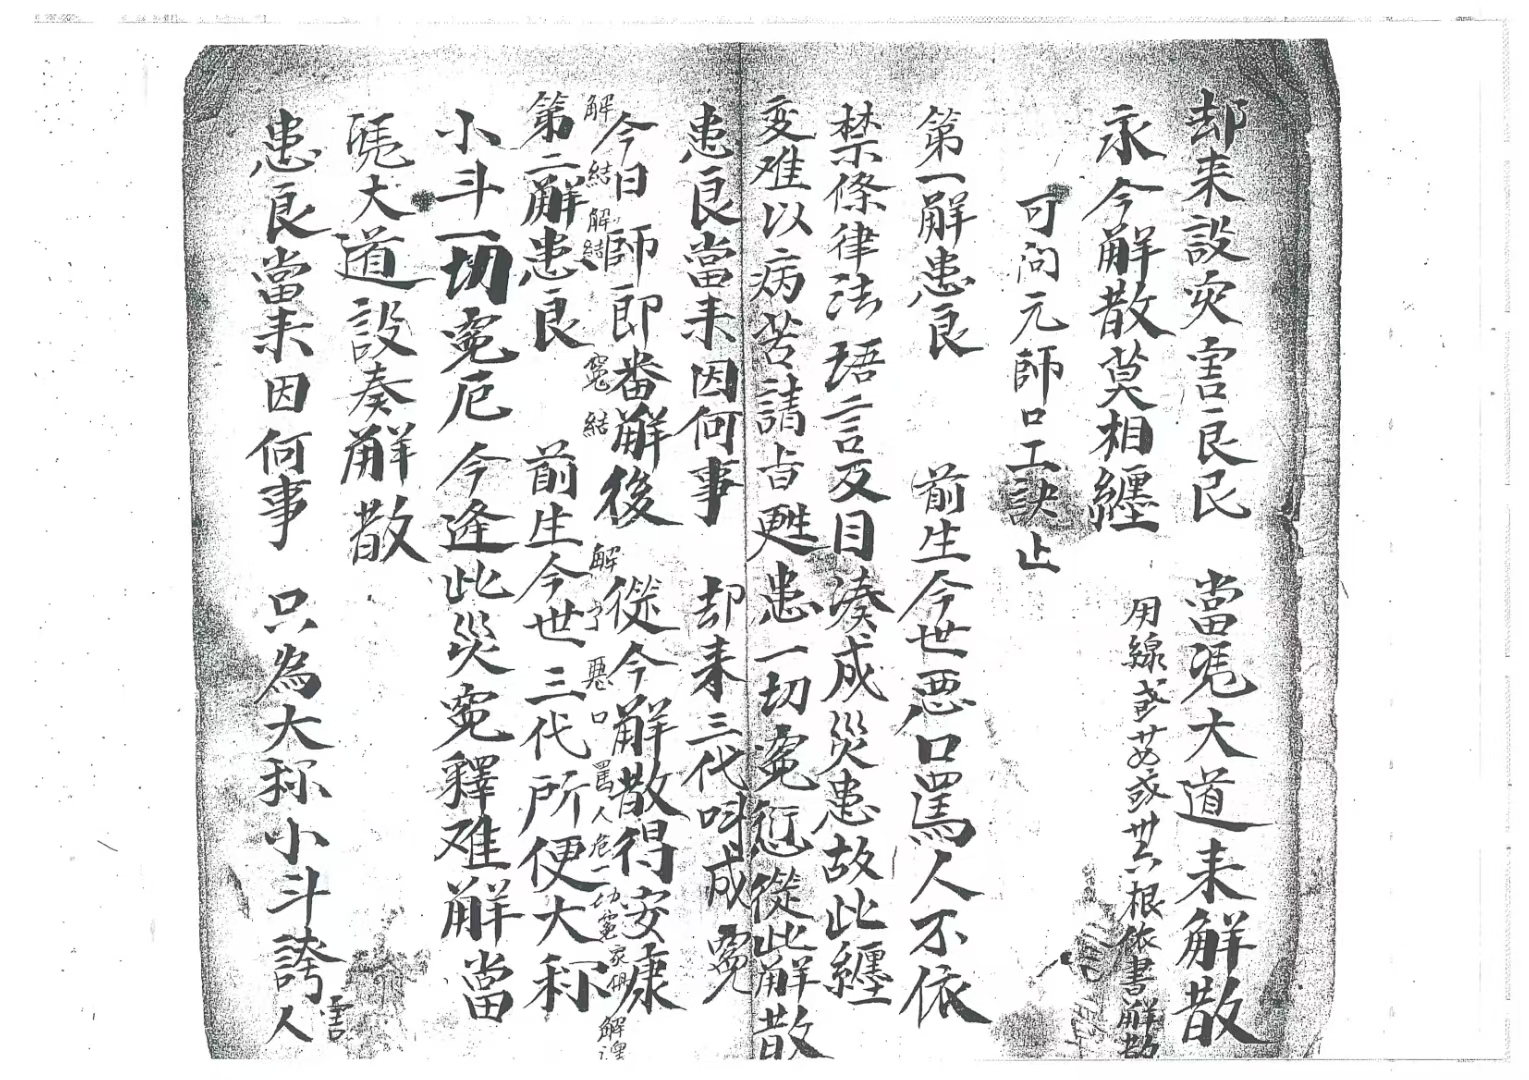 却来設灾害良民　當凴大道来解散
永今解散莫相纏　用線或廿四或卅六根依書解
可问元師口工訣止
第一解患良　前生今世惡口罵人不依
禁條律法語言及目湊成災患故此纏
变难以病苦請旨甦患一切寃愆從此解散
患良當来因何事　却来三代呌成寃
今日師即番解後　從今解散得安康
解結解結寃結解了惡口罵人危一切寃家俱解
第二解患良　前生今世三代所便大称
小斗一切寃厄今逢此災寃釋难解當
凴大道設奏解散
患良當来因何事　只為大称小斗誇人
言